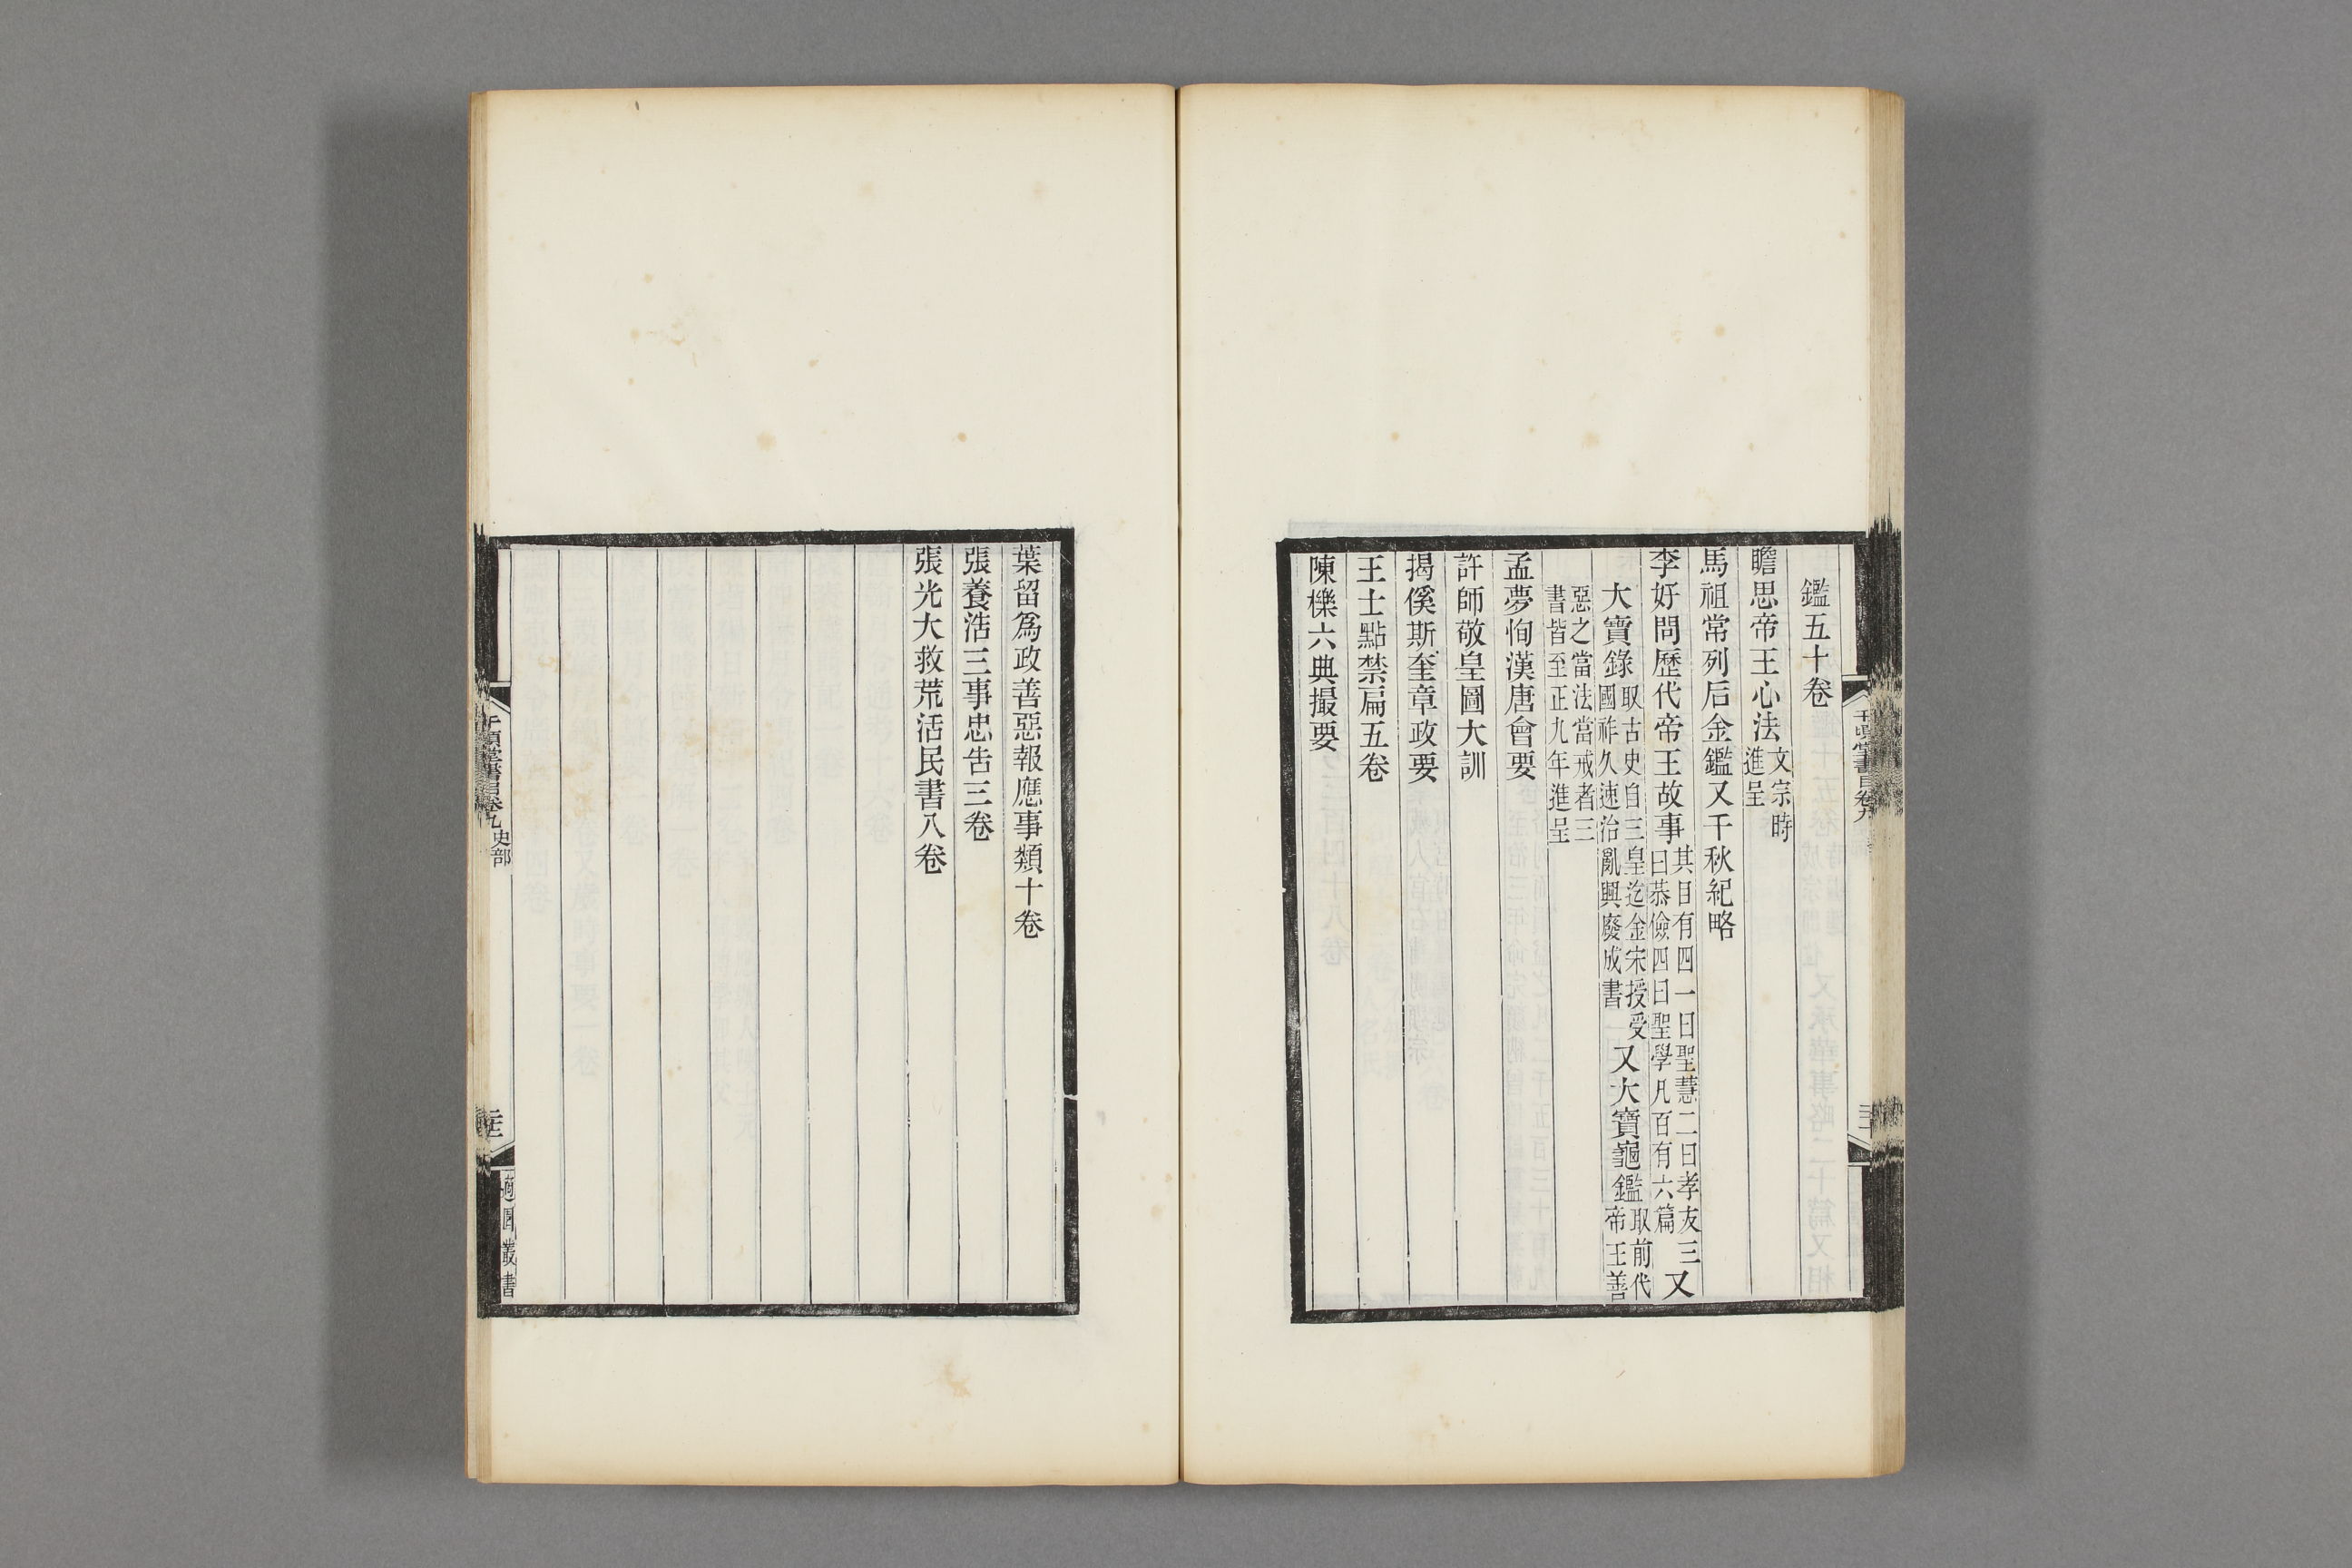 鑑五十卷
瞻思帝王心法文宗時進呈
馬祖常列后金鑑又千秋紀略
李好問歷代帝王故事其目有四一曰聖慧二曰孝友三曰恭儉四曰聖學凡百有六篇又
大寶錄取古史自三皇迄金宋授受國祚久速治亂興廢成書又大寶龜鑑取前代帝王善
惡之當法當戒者三書皆至正九年進呈
孟夢恂漢唐會要
許師敬皇圖大訓
揭傒斯奎章政要
王士點禁扁五卷
陳櫟六典撮要
葉留爲政善惡報應事類十卷
張養浩三事忠告三卷
張光大救荒活民書八卷
千頃堂書目卷九 史部
適園叢書